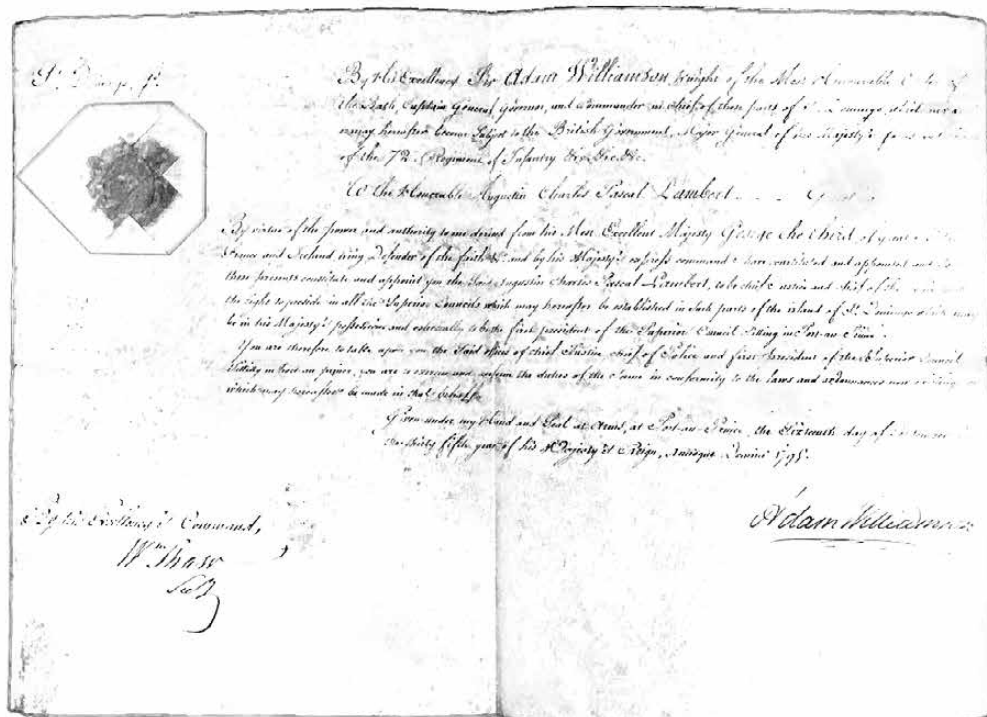 By His Excellency Sir Adam Williamson Knight of the Most Honourable Order of
the Bath, Captain General, Governor, and Commander in Chief of those parts of St. Domingo, which now or
may hereafter become Subject to the British Government, Major General of his Majesty's forces
of the 72d Regiment of Infantry &c &c &c.
To the Honorable Augustin Charles Pascal Lambert
By virtue of the power and authority to me derived from his Most Excellent Majesty George the third of great
France and Ireland King Defender of the faith &c and by his Majesty's express command I have constituted and appointed and
these presents constitute and appoint you the Augustin Charles Pascal Lambert, to be chief Justice and chief of the
the right to preside in all the Superior Councils which may hereafter be established in such parts of the island of St. Domingo which may
be in his Majesty's possession and especially to be the first president of the Superior Council Sitting in Port-au-Prince.
You are therefore to take upon you the said office of chief Justice, chief of Police and first President of the Superior Council
Sitting in Port au prince, you are to exercise and perform the duties of the Same in conformity to the laws and ordonnances now
which may hereafter be made in that behalf.
Given under my Hand and Seal at Arms, at Port-au-Prince, the Sixteenth day of
the thirty fifth year of his Majesty's Reign, Annoque Domini 1795.
By his Excellency's Command,
Adam Williamson
Wm Shaw
Secy